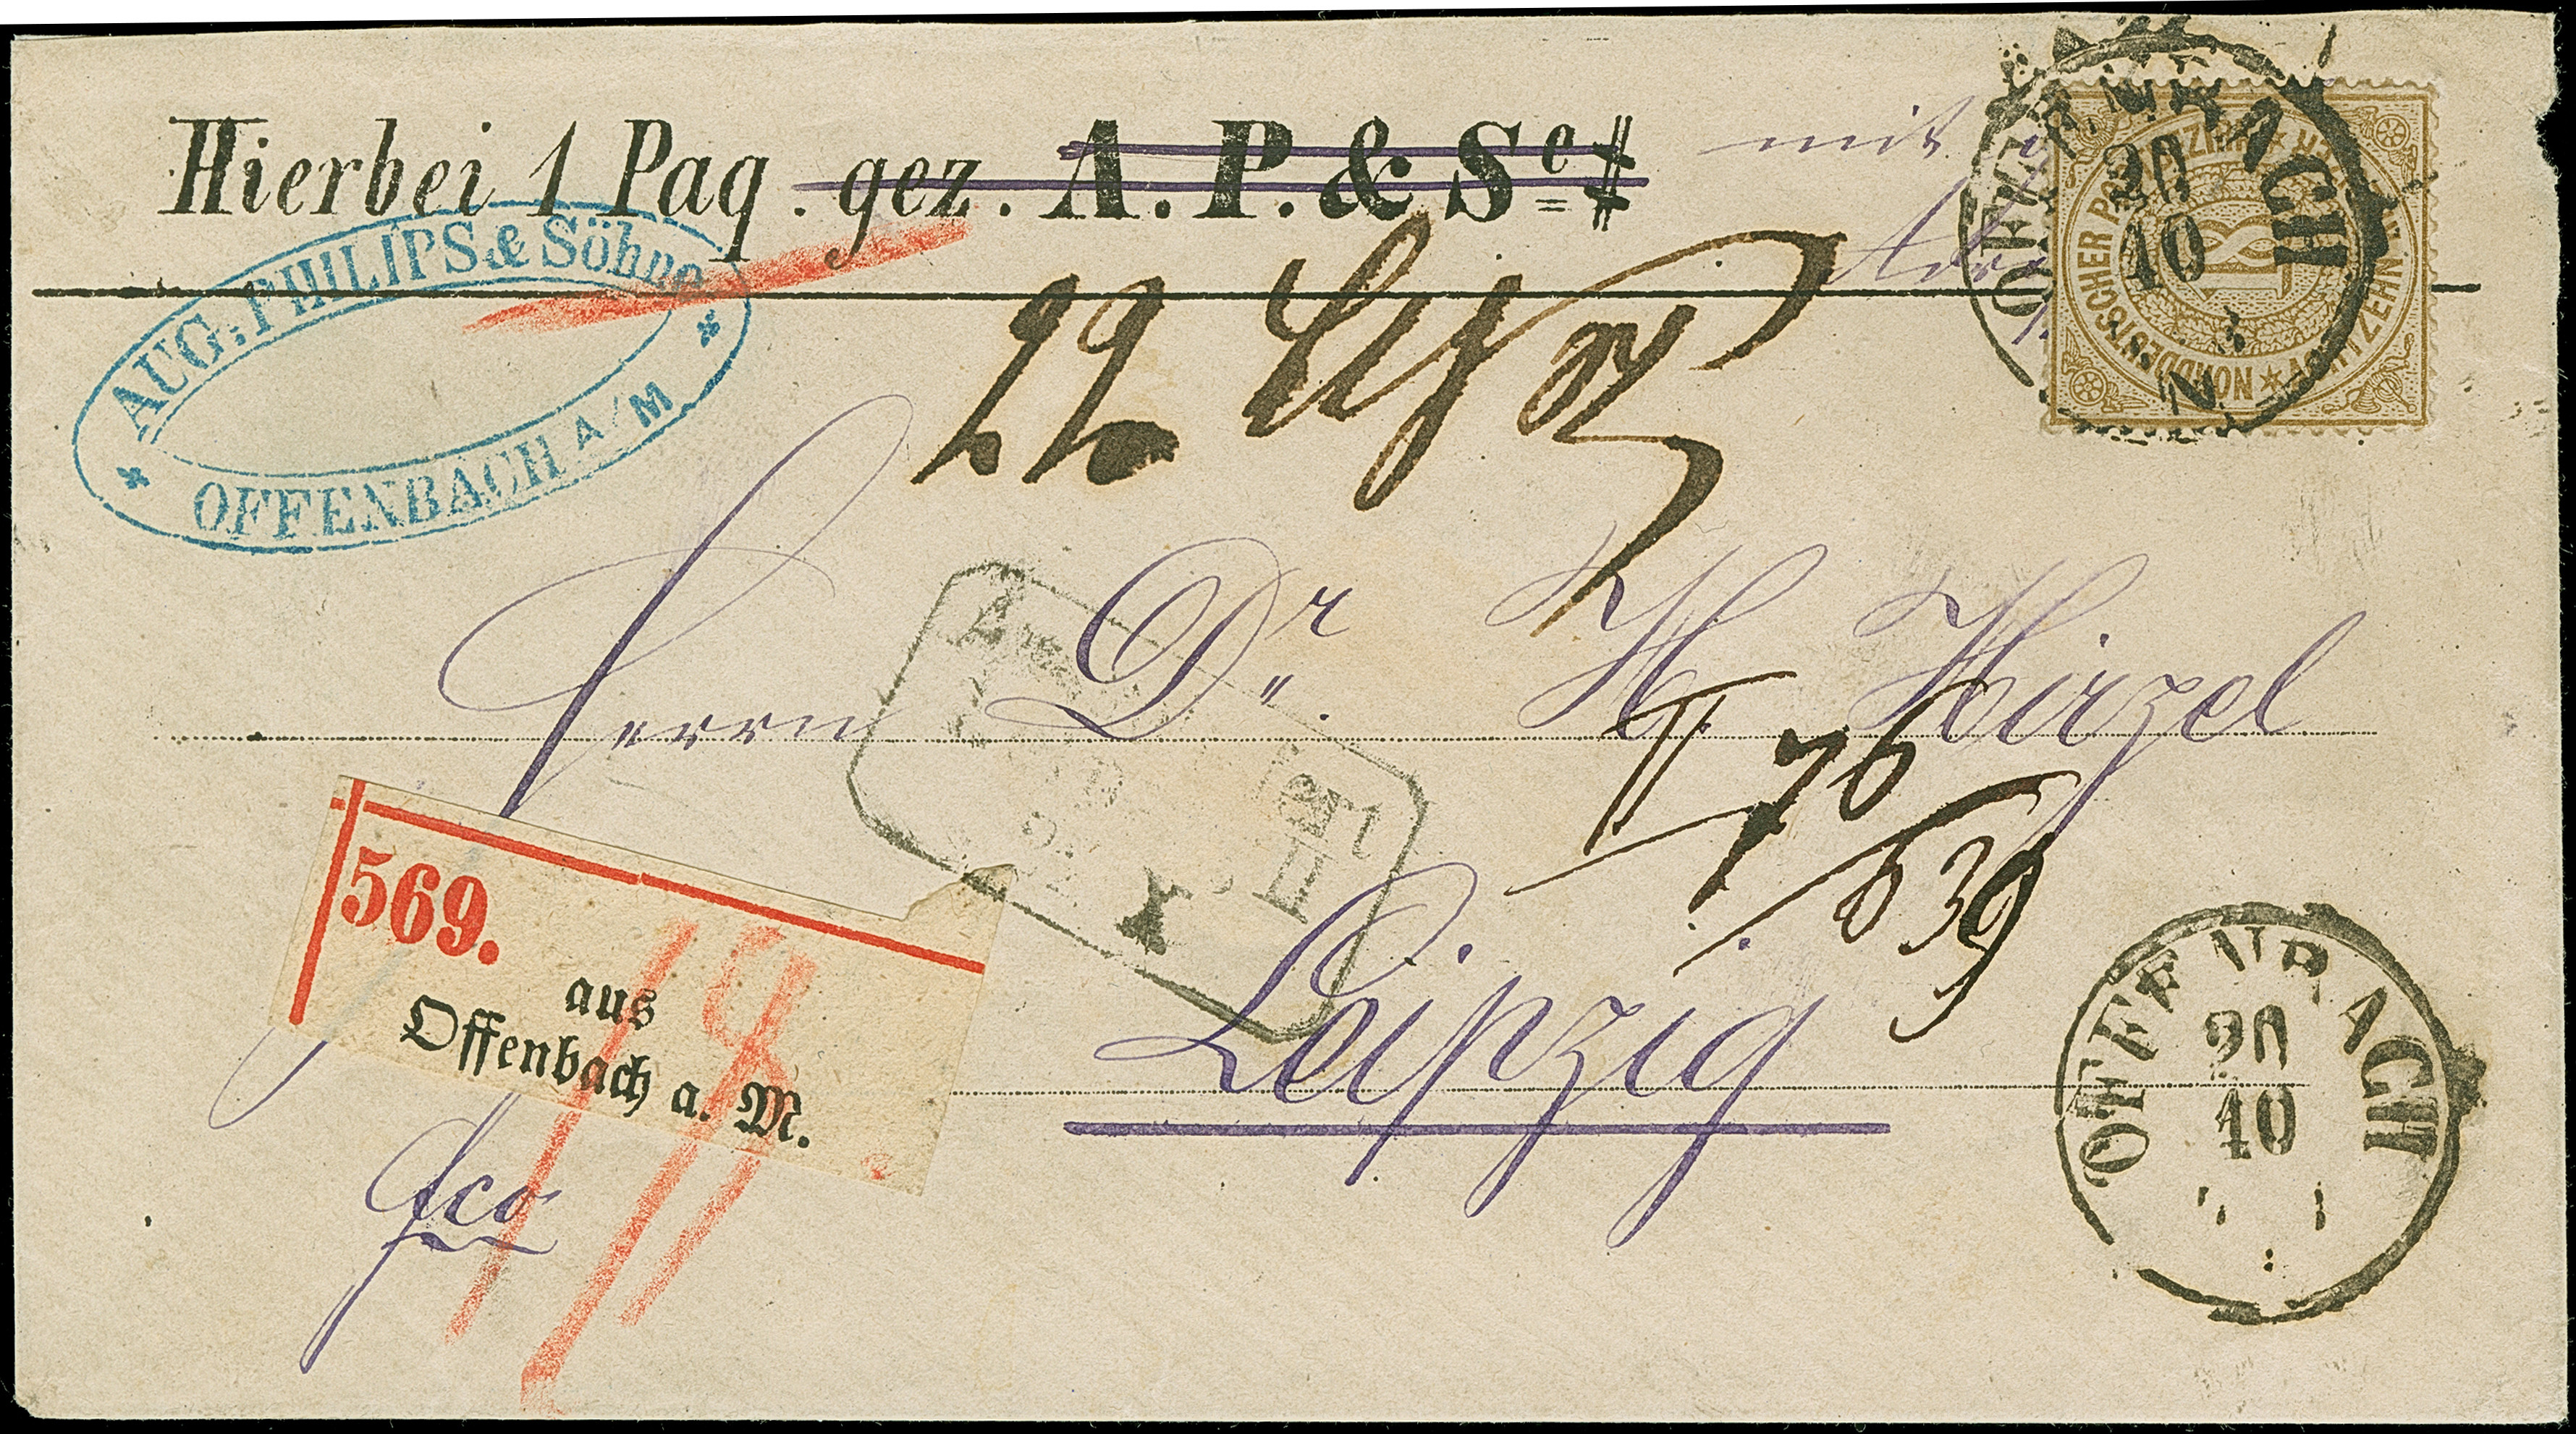 Hierbei 1 Paq. gez. A. P. & Sᵉ mit
AUG: PHILIPS & Söhne
OFFENBACH A/M
OFFENBACH
20
10
NORDDEUTSCHER POSTBEZIRK
ACHTZEHN KREUZER
18
22
Herrn Dr. H. Hirzel
II 76
639
Leipzig
569.
aus
Offenbach a. M.
fco
18
OFFENBACH
20
10